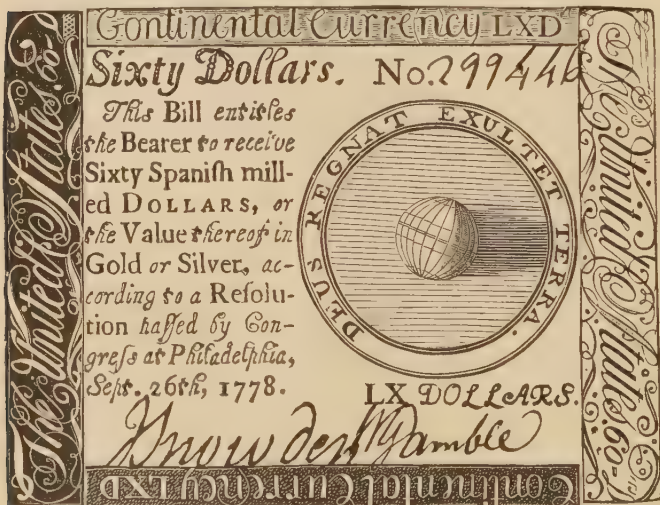 Continental Currency LXD
Sixty Dollars. No. 299446
This Bill entitles
the Bearer to receive
Sixty Spanish mill-
ed DOLLARS, or
the Value thereof in
Gold or Silver, ac-
cording to a Resolu-
tion passed by Con-
gress at Philadelphia,
Sept. 26th, 1778.
DEUS REGNAT EXULTET TERRA.
LX DOLLARS.
Snowden W Gamble
The United States. 60-
The United States. 60-
Continental Currency LXD